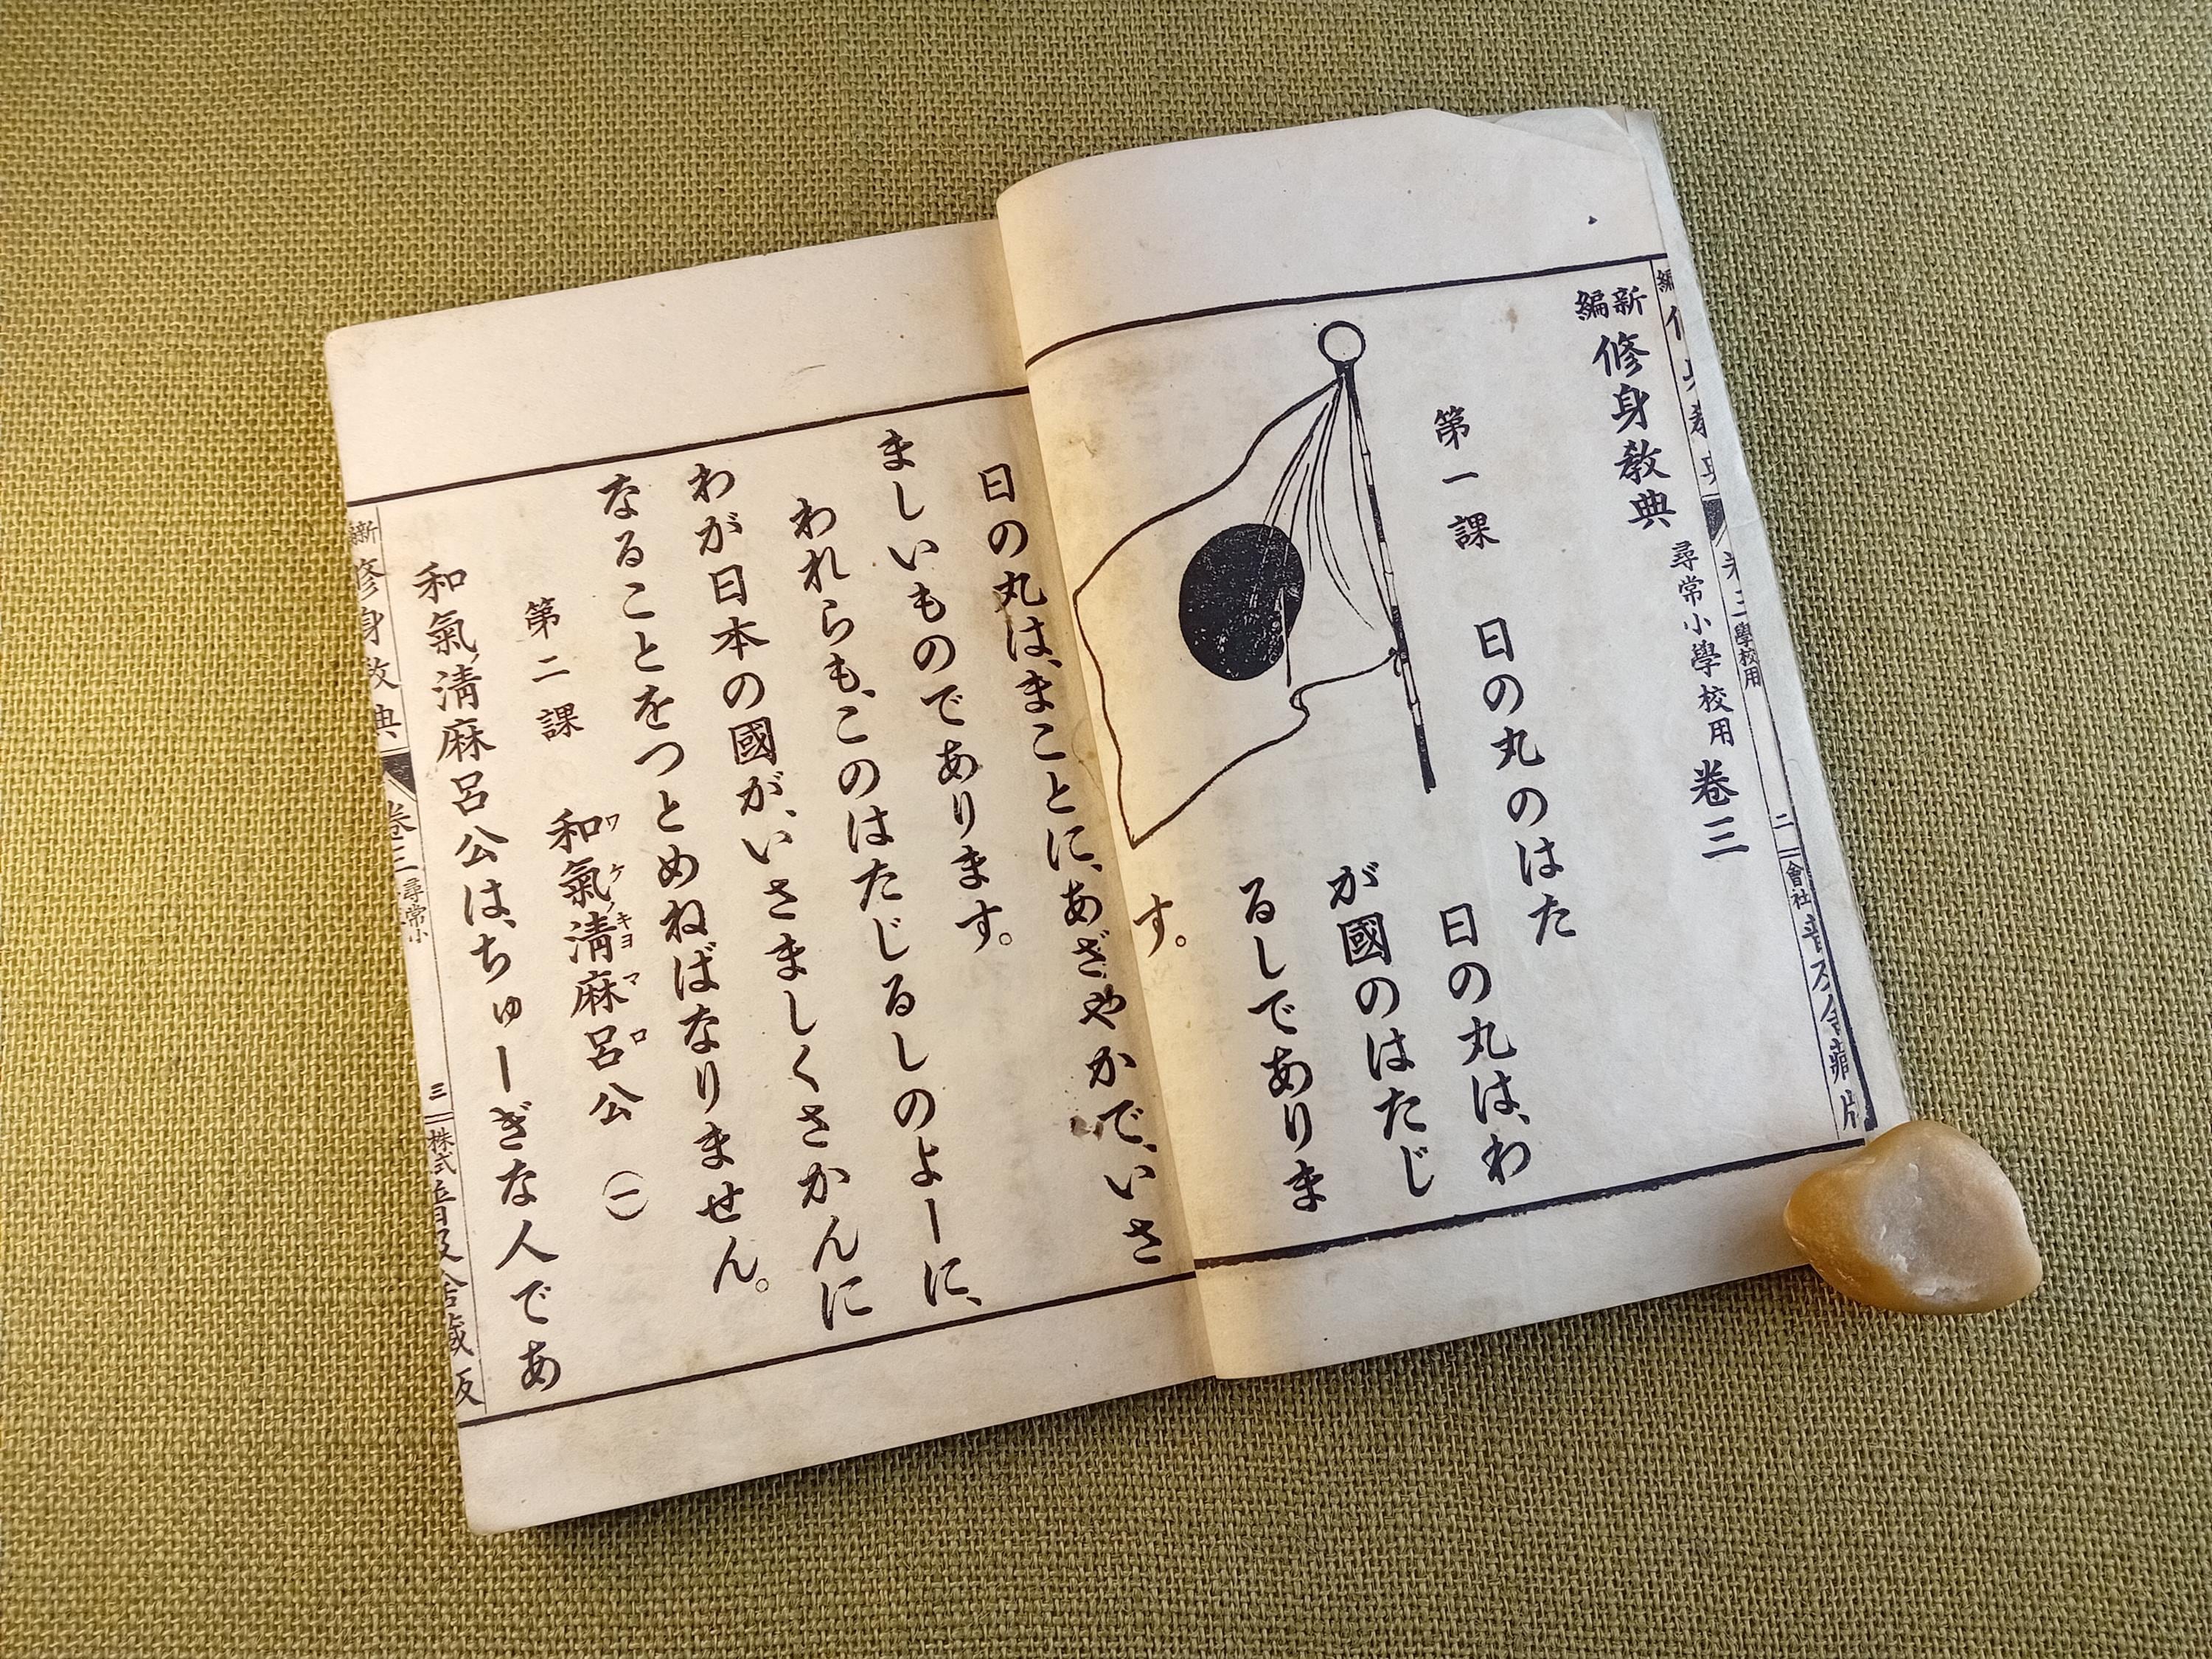 新編修身教典尋常小學校用卷三
第一課 日の丸のはた
日の丸は、わ
が國のはたじ
るしでありま
す。
日の丸は、まことに、あざやかで、いさ
ましいものであります。
われらも、このはたじるしのよーに、
わが日本の國が、いさましくさかんに
なることをつとめねばなりません。
第二課 和氣清麻呂公(一)
ワケノキヨマロ
和氣清麻呂公は、ちゅーぎな人であ
新編修身教典 卷三尋常小 三 株式